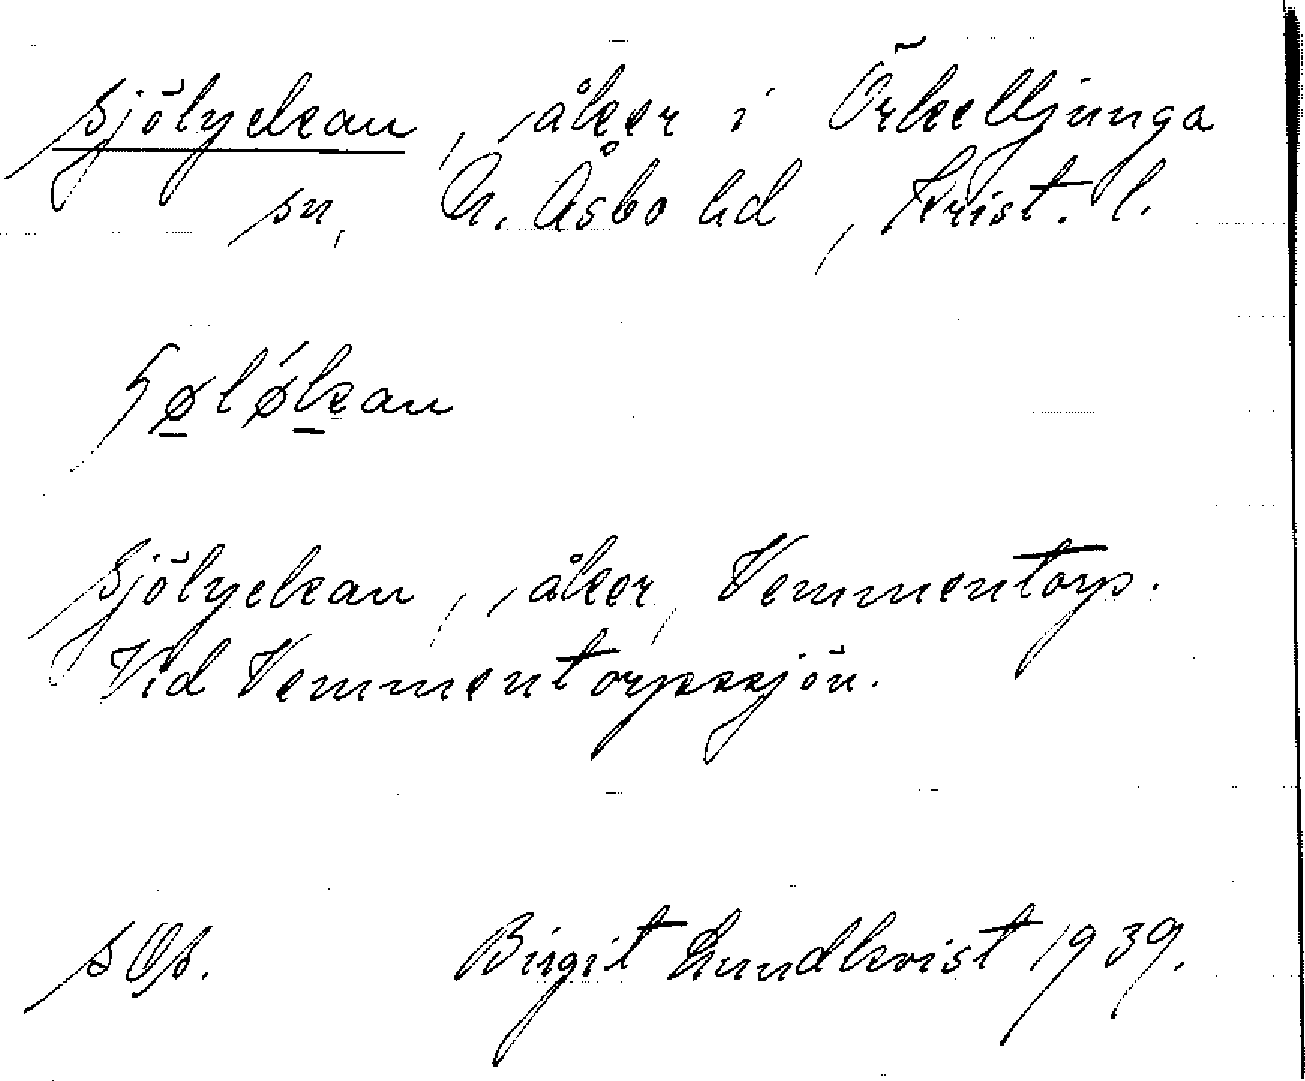 sjölyckan, åker i Örkelljunga
sn, N. Åsbo hd, Krist. l.
sjölyckan, åker, Vemmentorp.
Vid Vemmentorpssjön.
Birgit Lundkvist 1939.